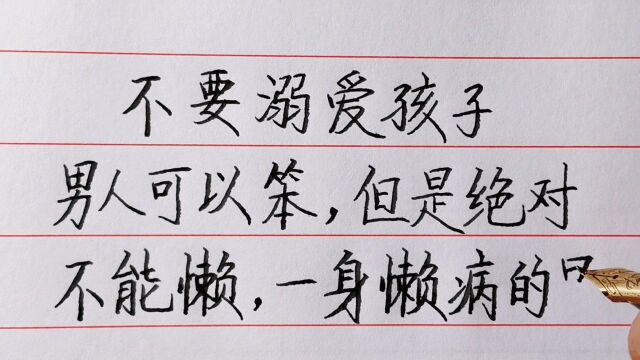 不要溺爱孩子
男人可以笨,但是绝对
不能懒,一身懒病的